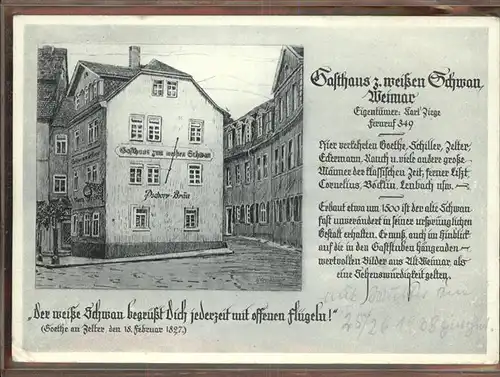 Gasthaus z. weißen Schwan
Weimar
Eigentümer: Karl Ziege
Fernruf 349
Hier verkehrten Goethe, Schiller, Zelter,
Eckermann, Rauch u. viele andere große
Männer der klassischen Zeit, ferner Liszt
Cornelius, Böcklin, Lenbach usw.
Erbaut etwa um 1500 ist der alte Schwan
fast unverändert in seiner ursprünglichen
Gestalt erhalten. Er muß, auch im Hinblick
auf die in den Gaststuben hängenden
wertvollen Bilder aus Alt-Weimar, als
eine Sehenswürdigkeit gelten.
Gasthaus zum weißen Schwan
Pschorr-Bräu
„Der weiße Schwan begrüßt Dich jederzeit mit offenen Flügeln!“
(Goethe an Zelter, den 18. Februar 1827.)